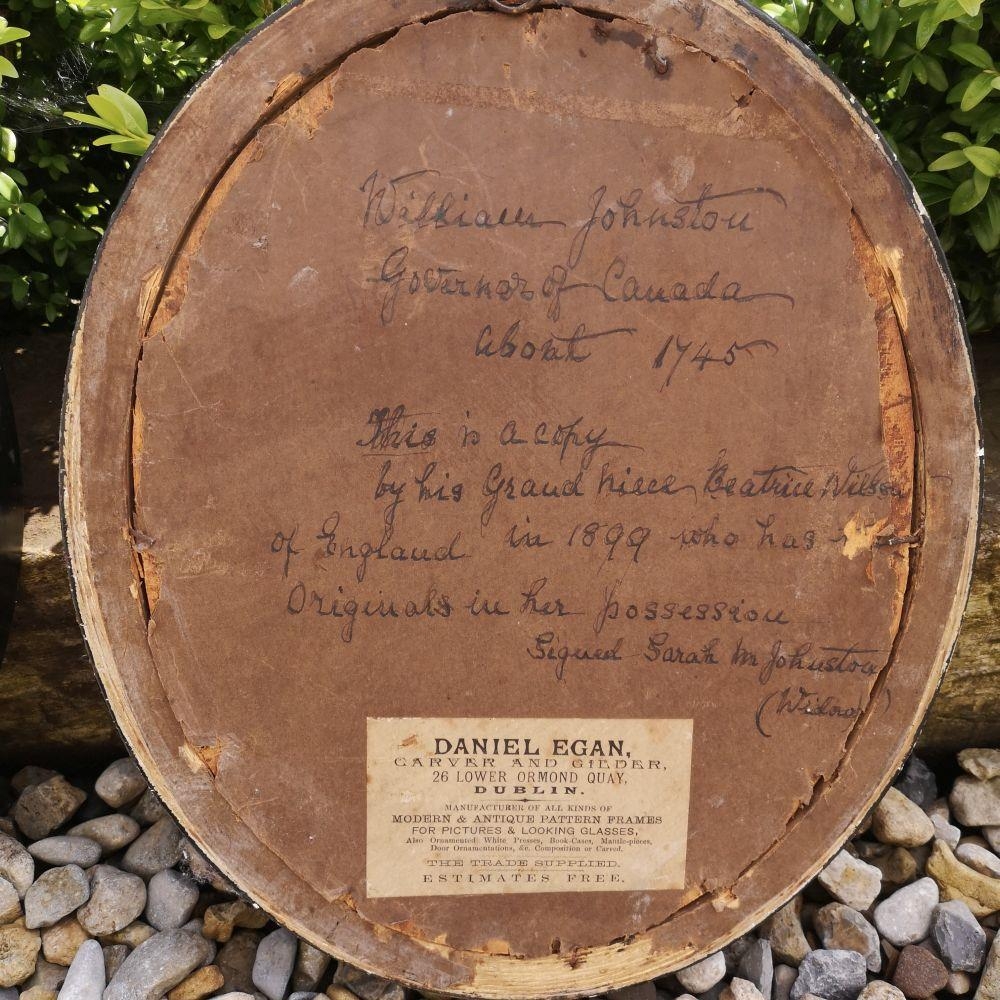 William Johnston
Governor of Canada
about 1745
This is a copy
by his Grand niece Beatrice Wilson
of England in 1899 who has
Originals in her possession
Signed Sarah M Johnston
(Widow)
DANIEL EGAN,
CARVER AND GILDER,
26 LOWER ORMOND QUAY,
DUBLIN.
MANUFACTURER OF ALL KINDS OF
MODERN & ANTIQUE PATTERN FRAMES
FOR PICTURES & LOOKING GLASSES,
Also Ornamented White Presses, Book-Cases, Mantle-pieces,
Door Ornamentations, &c. Composition or Carved.
THE TRADE SUPPLIED.
ESTIMATES FREE.